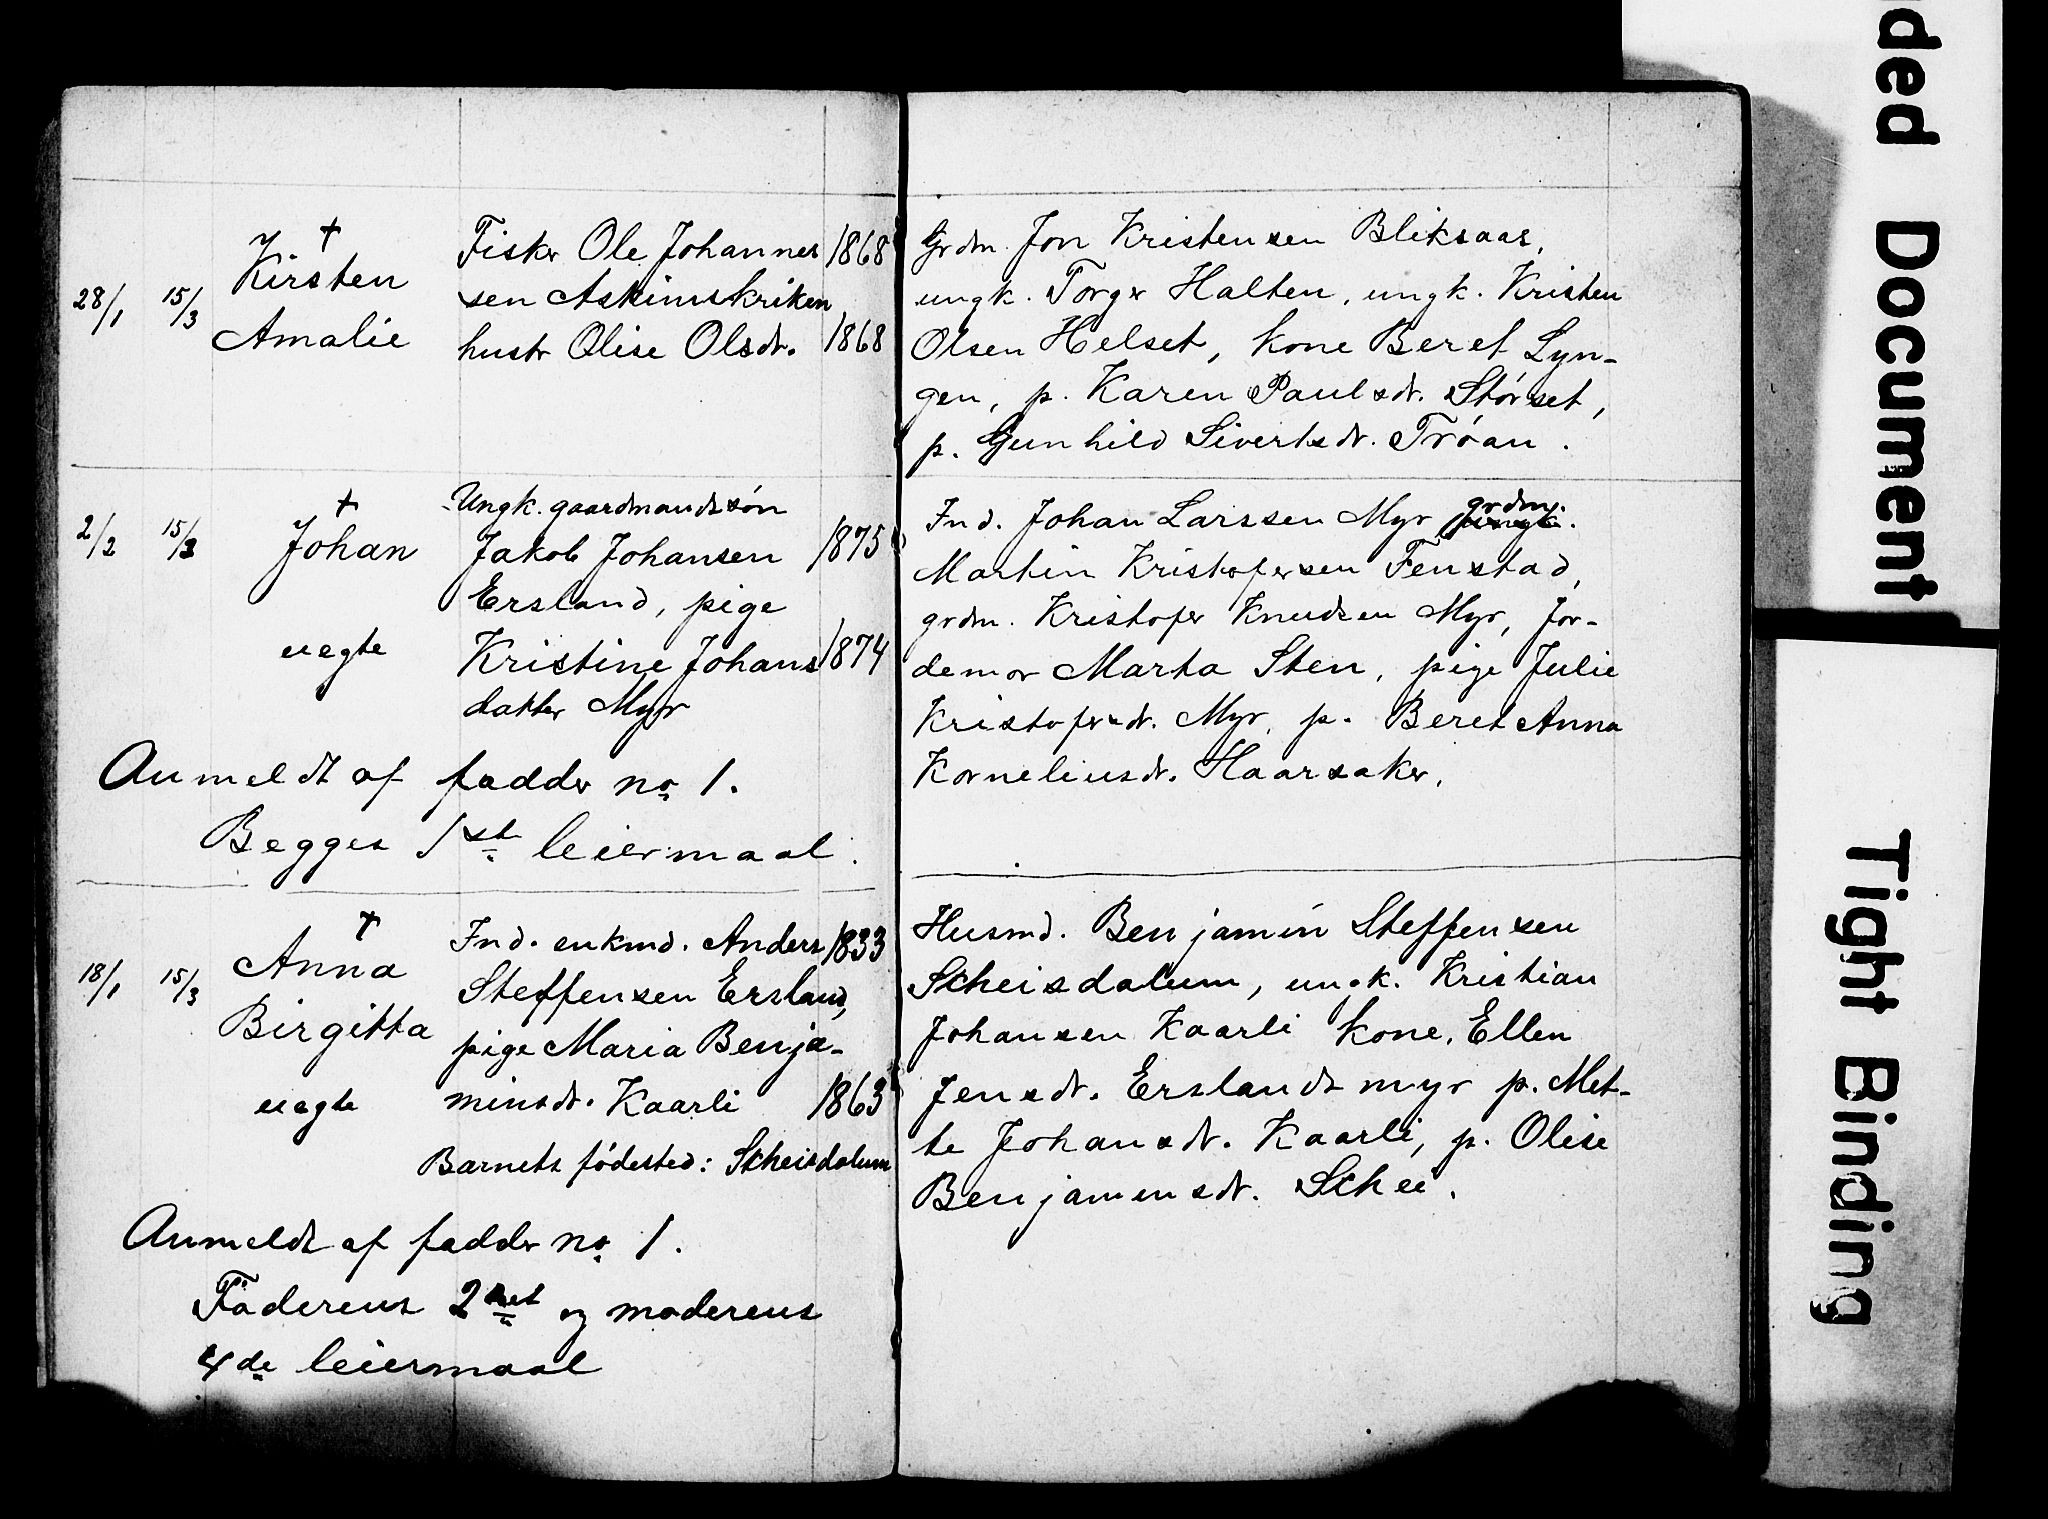 28/1 15/3 Kirsten †
Amalie
Fisker Ole Johannes 1868
sen Askimskriken
hustr Olise Olsdr. 1868
Grdm. Jon Kristensen Bliksaas,
ungk. Torger Halten, ungk. Kristen
Olsen Helset, kone Beret Lyn-
gen, p. Karen Paulsdr. Störset,
p. Gunhild Sivertsdr. Tröan.
2/2 15/3 Johan †
uegte
Ungk. gaardmandssön
Jakob Johansen 1875
Ersland, pige
Kristine Johans 1874
datter Myr
Anmeldt af fadder no 1.
Begges 1st leiermaal.
Ind. Johan Larssen Myr grdm.
Martin Kristofersen Fenstad,
grdm. Kristofer Knudsen Myr, Jor-
demor Marta Sten, pige Julie
Kristofersdr. Myr, p. Beret Anna
Korneliusdr. Haarsaker.
18/1 15/3 Anna †
Birgitta
uegte
Ind. enkmd. Anders 1833
Steffensen Ersland,
pige Maria Benja-
minsdr. Kaarli 1863
Barnets födested: Scheisdalum
Anmeldt af fadder no 1.
Faderens 2det og moderens
4de leiermaal
Husmd. Benjamin Steffensen
Scheisdalum, ungk. Kristian
Johansen Kaarli kone, Ellen
Jensdr. Erslandsmyr p. Met-
te Johansdr. Kaarli, p. Olise
Benjaminsdr. Schei.
ded Document
Tight Binding